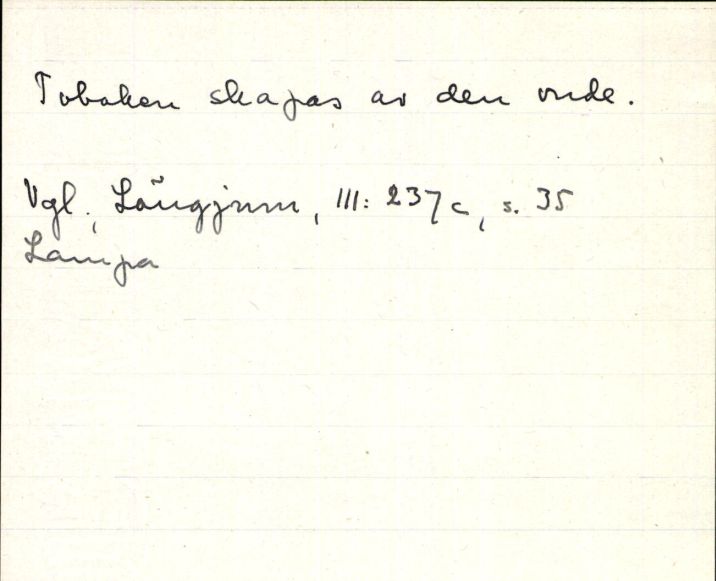 Tobaken skapas av den onde.
Vgl., Långjum, III: 237 c, s. 35
Lampa